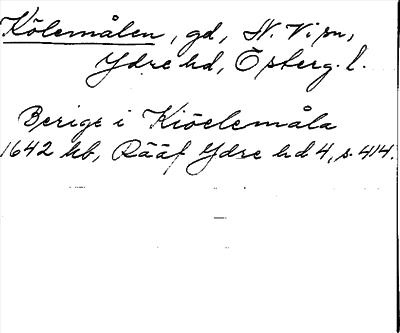 Kölemålen, gd, N. Vi sn,
Ydre hd, Österg. l.
Berige i Kiöelemåla
1642 kb, Rääf Ydre hd 4, s. 414.